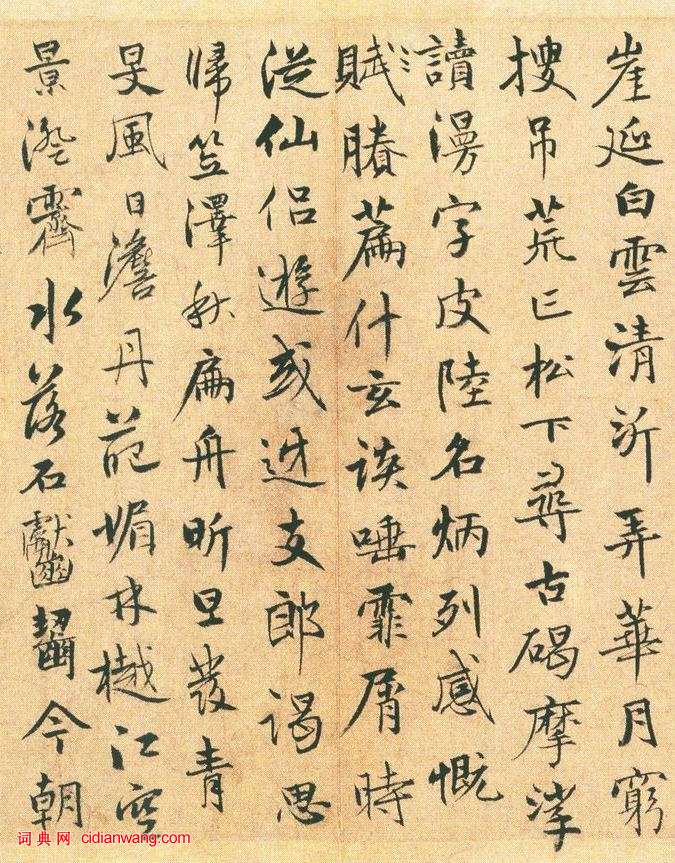 崖延白雲清沂弄華月窮
搜吊荒松下尋古碣摩挲
讀漫字皮陸名炳列感慨
賦賸篇什玄談唾霏屑時
從仙侶遊或迓支郎謁思
歸笠澤秋扁舟昕旦發青
旻風日澹丹葩媚林樾江空
景澄霽水落石齾齧今朝
词典网 cidianwang.com